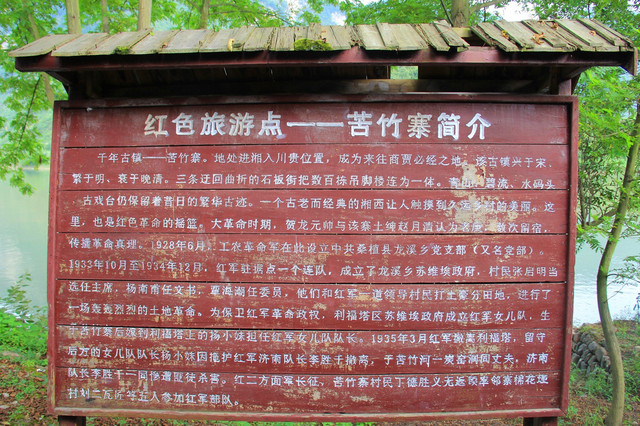 红色旅游点——苦竹寨简介
千年古镇——苦竹寨。地处进湘入川贵位置，成为来往商贾必经之地。该古镇兴于宋、
繁于明、衰于晚清。三条迂回曲折的石板街把数百栋吊脚楼连为一体。青山、碧流、水码头
古戏台仍保留着昔日的繁华古迹。一个古老而经典的湘西让人触摸到久远乡村的美丽。这
里，也是红色革命的摇篮。大革命时期，贺龙元帅与该寨土绅赵月清认为名 一数次留宿，
传播革命真理。1928年6月，工农革命军在此设立中共桑植县龙溪乡党支部（又名党部）。
1933年10月至1934年12月，红军驻据点一个连队，成立了龙溪乡苏维埃政府，村民张启明当
选任主席，杨南南任文书，覃海湖任委员，他们和红军一道领导村民打土豪分田地，进行了
一场轰轰烈烈的土地革命。为保卫红军革命政权，利福塔区苏维埃政府成立红军女儿队，生
于苦竹寨后嫁到利福塔上的杨小妹担任红军女儿队队长。1935年3月红军撤离利福塔，留守
后方的女儿队队长杨小妹因掩护红军济南队长李胜千撤离，于苦竹河 炭窑洞回丈夫，济南
队长李胜千一同惨遭匪徒杀害。红二方面军长征，苦竹寨村民丁德胜义无返顾率邻寨棉花堰
村刘二瓦所等五人参加红军部队。